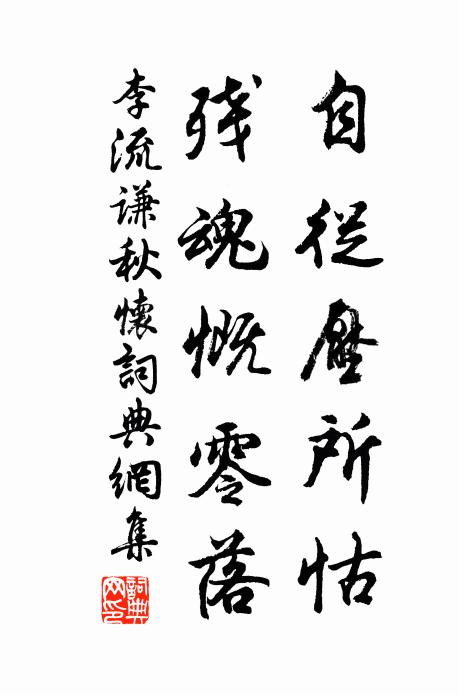 自從壓所怙
殘魂慨零落
李流謙秋懷詞典網集
詞典網印